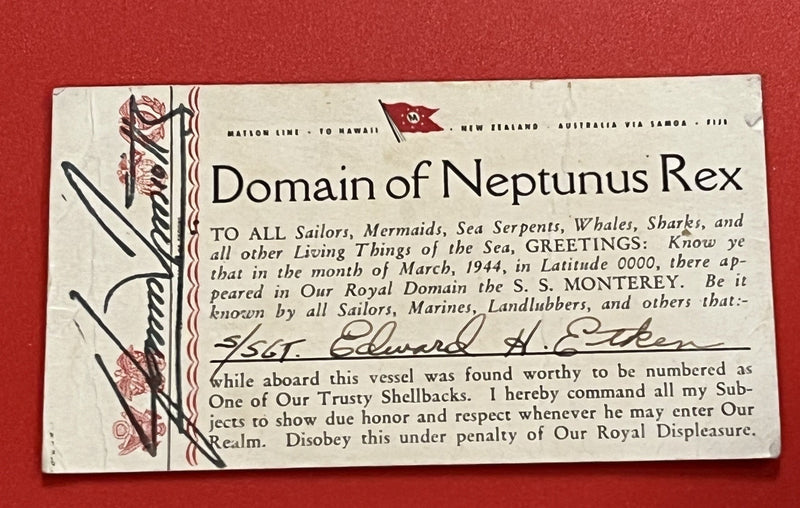 MATSON LINE · TO HAWAII · NEW ZEALAND · AUSTRALIA VIA SAMOA · FIJI
Domain of Neptunus Rex
TO ALL Sailors, Mermaids, Sea Serpents, Whales, Sharks, and
all other Living Things of the Sea, GREETINGS: Know ye
that in the month of March, 1944, in Latitude 0000, there ap-
peared in Our Royal Domain the S. S. MONTEREY. Be it
known by all Sailors, Marines, Landlubbers, and others that:-
S/SGT. Edward H. Etken
while aboard this vessel was found worthy to be numbered as
One of Our Trusty Shellbacks. I hereby command all my Sub-
jects to show due honor and respect whenever he may enter Our
Realm. Disobey this under penalty of Our Royal Displeasure.